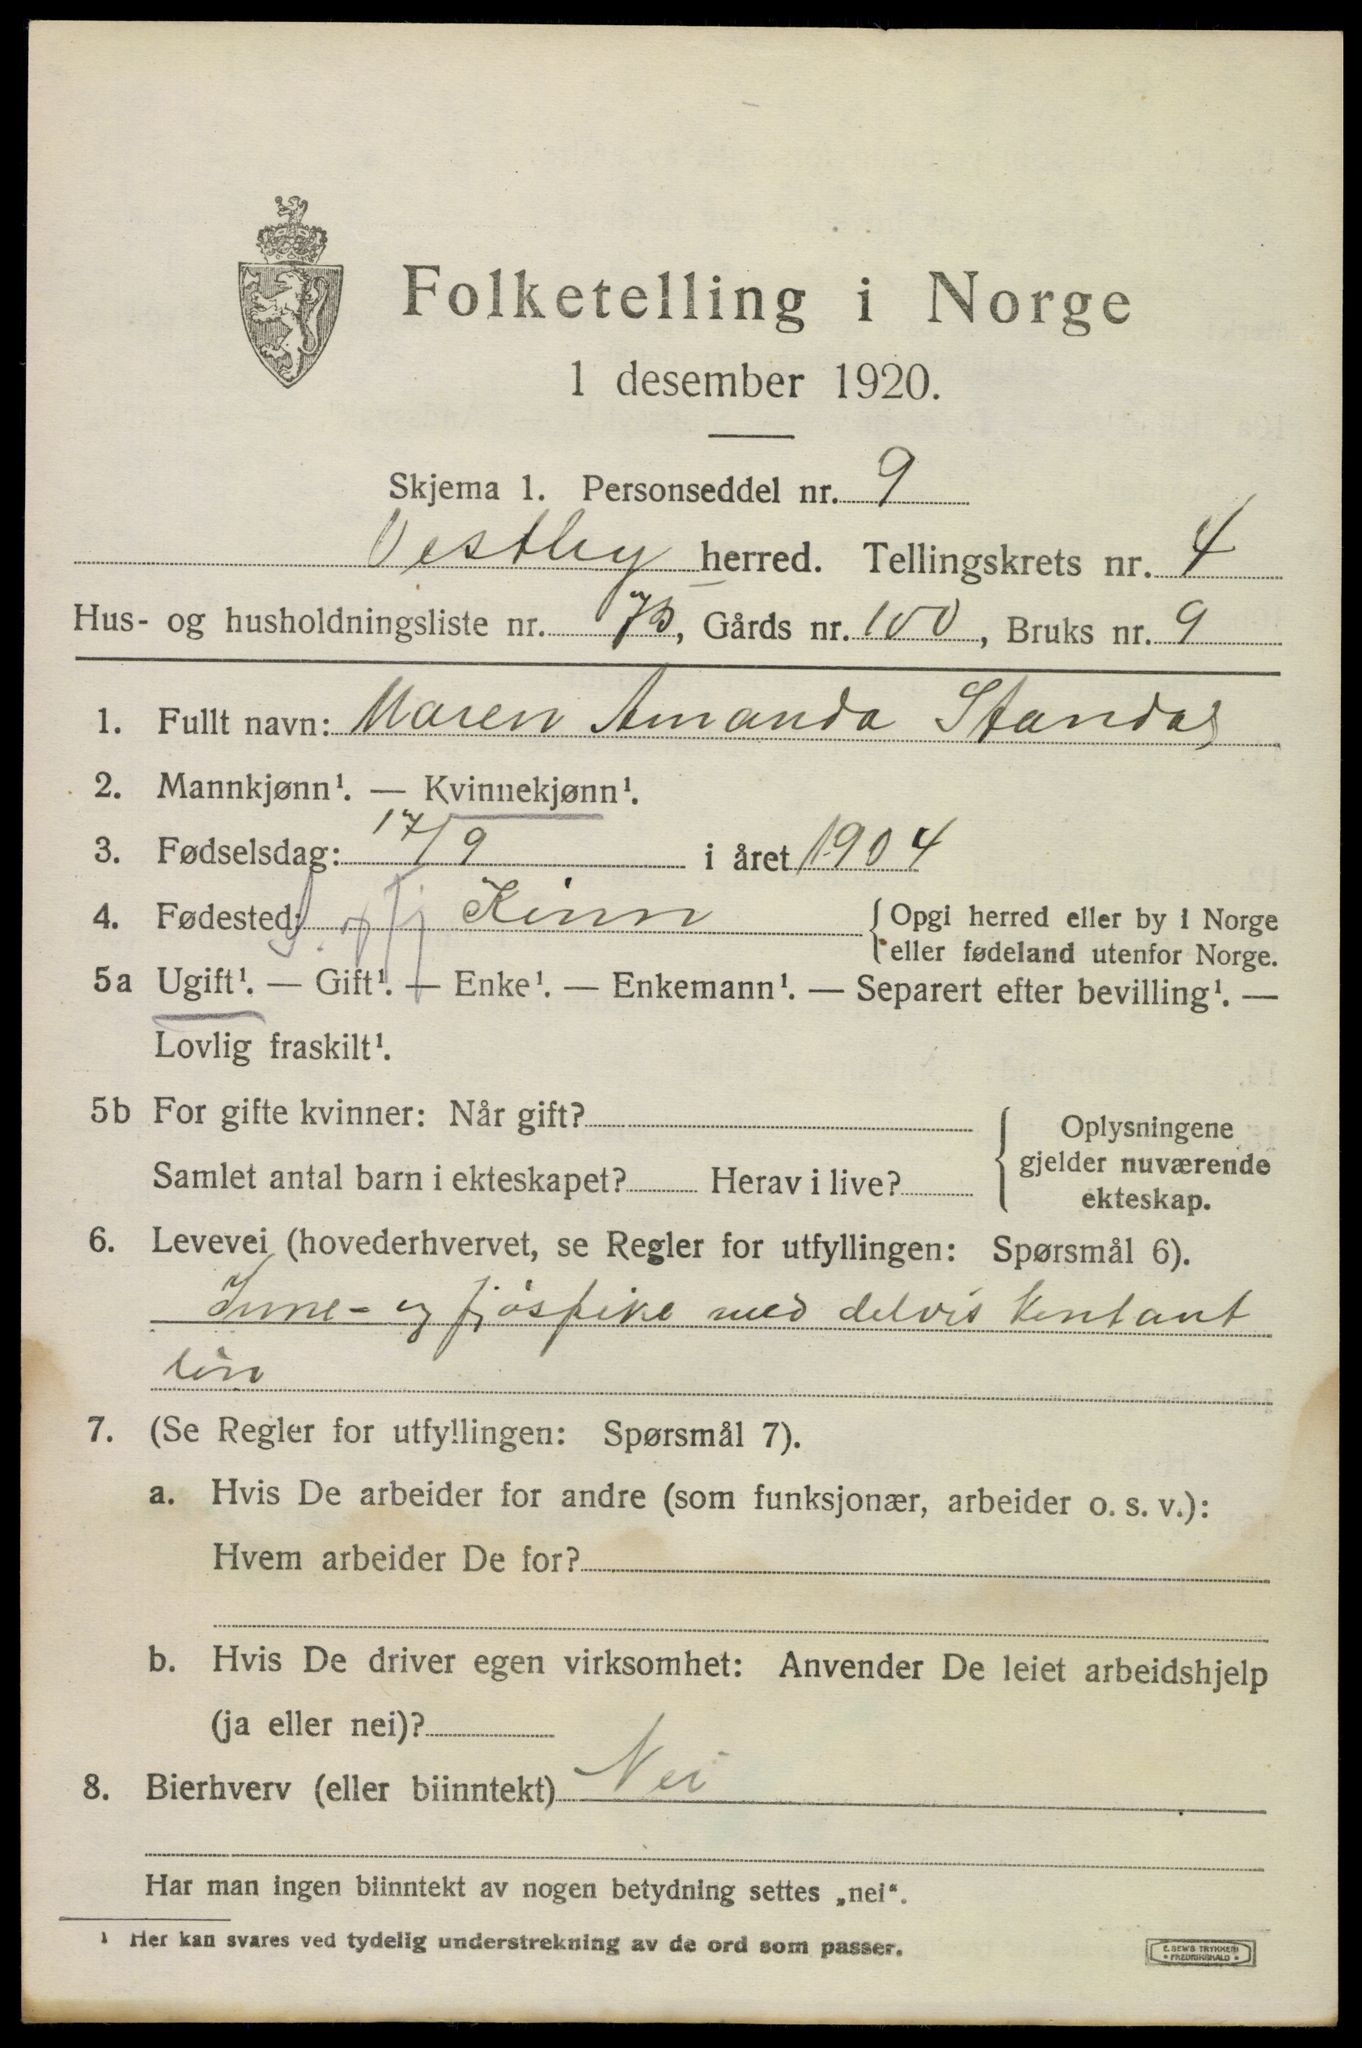 Folketelling i Norge
1 desember 1920.
Skjema 1. Personseddel nr. 9
Vestby herred. Tellingskrets nr. 4
Hus- og husholdningsliste nr. 73, Gårds nr. 100, Bruks nr. 9
1. Fullt navn: Maren Amanda Standal
2. Mannkjønn¹. — Kvinnekjønn¹.
3. Fødselsdag: 17/9 i året 1904
4. Fødested: S. og Fj Kinn {Opgi herred eller by i Norge
eller fødeland utenfor Norge.
5a Ugift¹. — Gift¹. — Enke¹. — Enkemann¹. — Separert efter bevilling¹. —
Lovlig fraskilt¹.
5b For gifte kvinner: Når gift?
Samlet antal barn i ekteskapet? Herav i live?
{Oplysningene
gjelder nuværende
ekteskap.
6. Levevei (hovederhvervet, se Regler for utfyllingen: Spørsmål 6).
Inne- og fjøspike med delvis kontant
løn
7. (Se Regler for utfyllingen: Spørsmål 7).
a. Hvis De arbeider for andre (som funksjonær, arbeider o. s. v.):
Hvem arbeider De for?
b. Hvis De driver egen virksomhet: Anvender De leiet arbeidshjelp
(ja eller nei)?
8. Bierhverv (eller biinntekt) Nei
Har man ingen biinntekt av nogen betydning settes „nei".
¹ Her kan svares ved tydelig understrekning av de ord som passer.
E. SEM'S TRYKKERI
FREDRIKSHALD